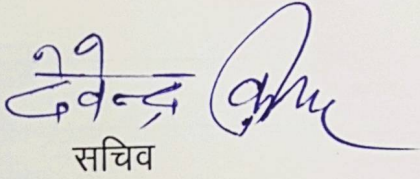 देवेन्द्र
सचिव